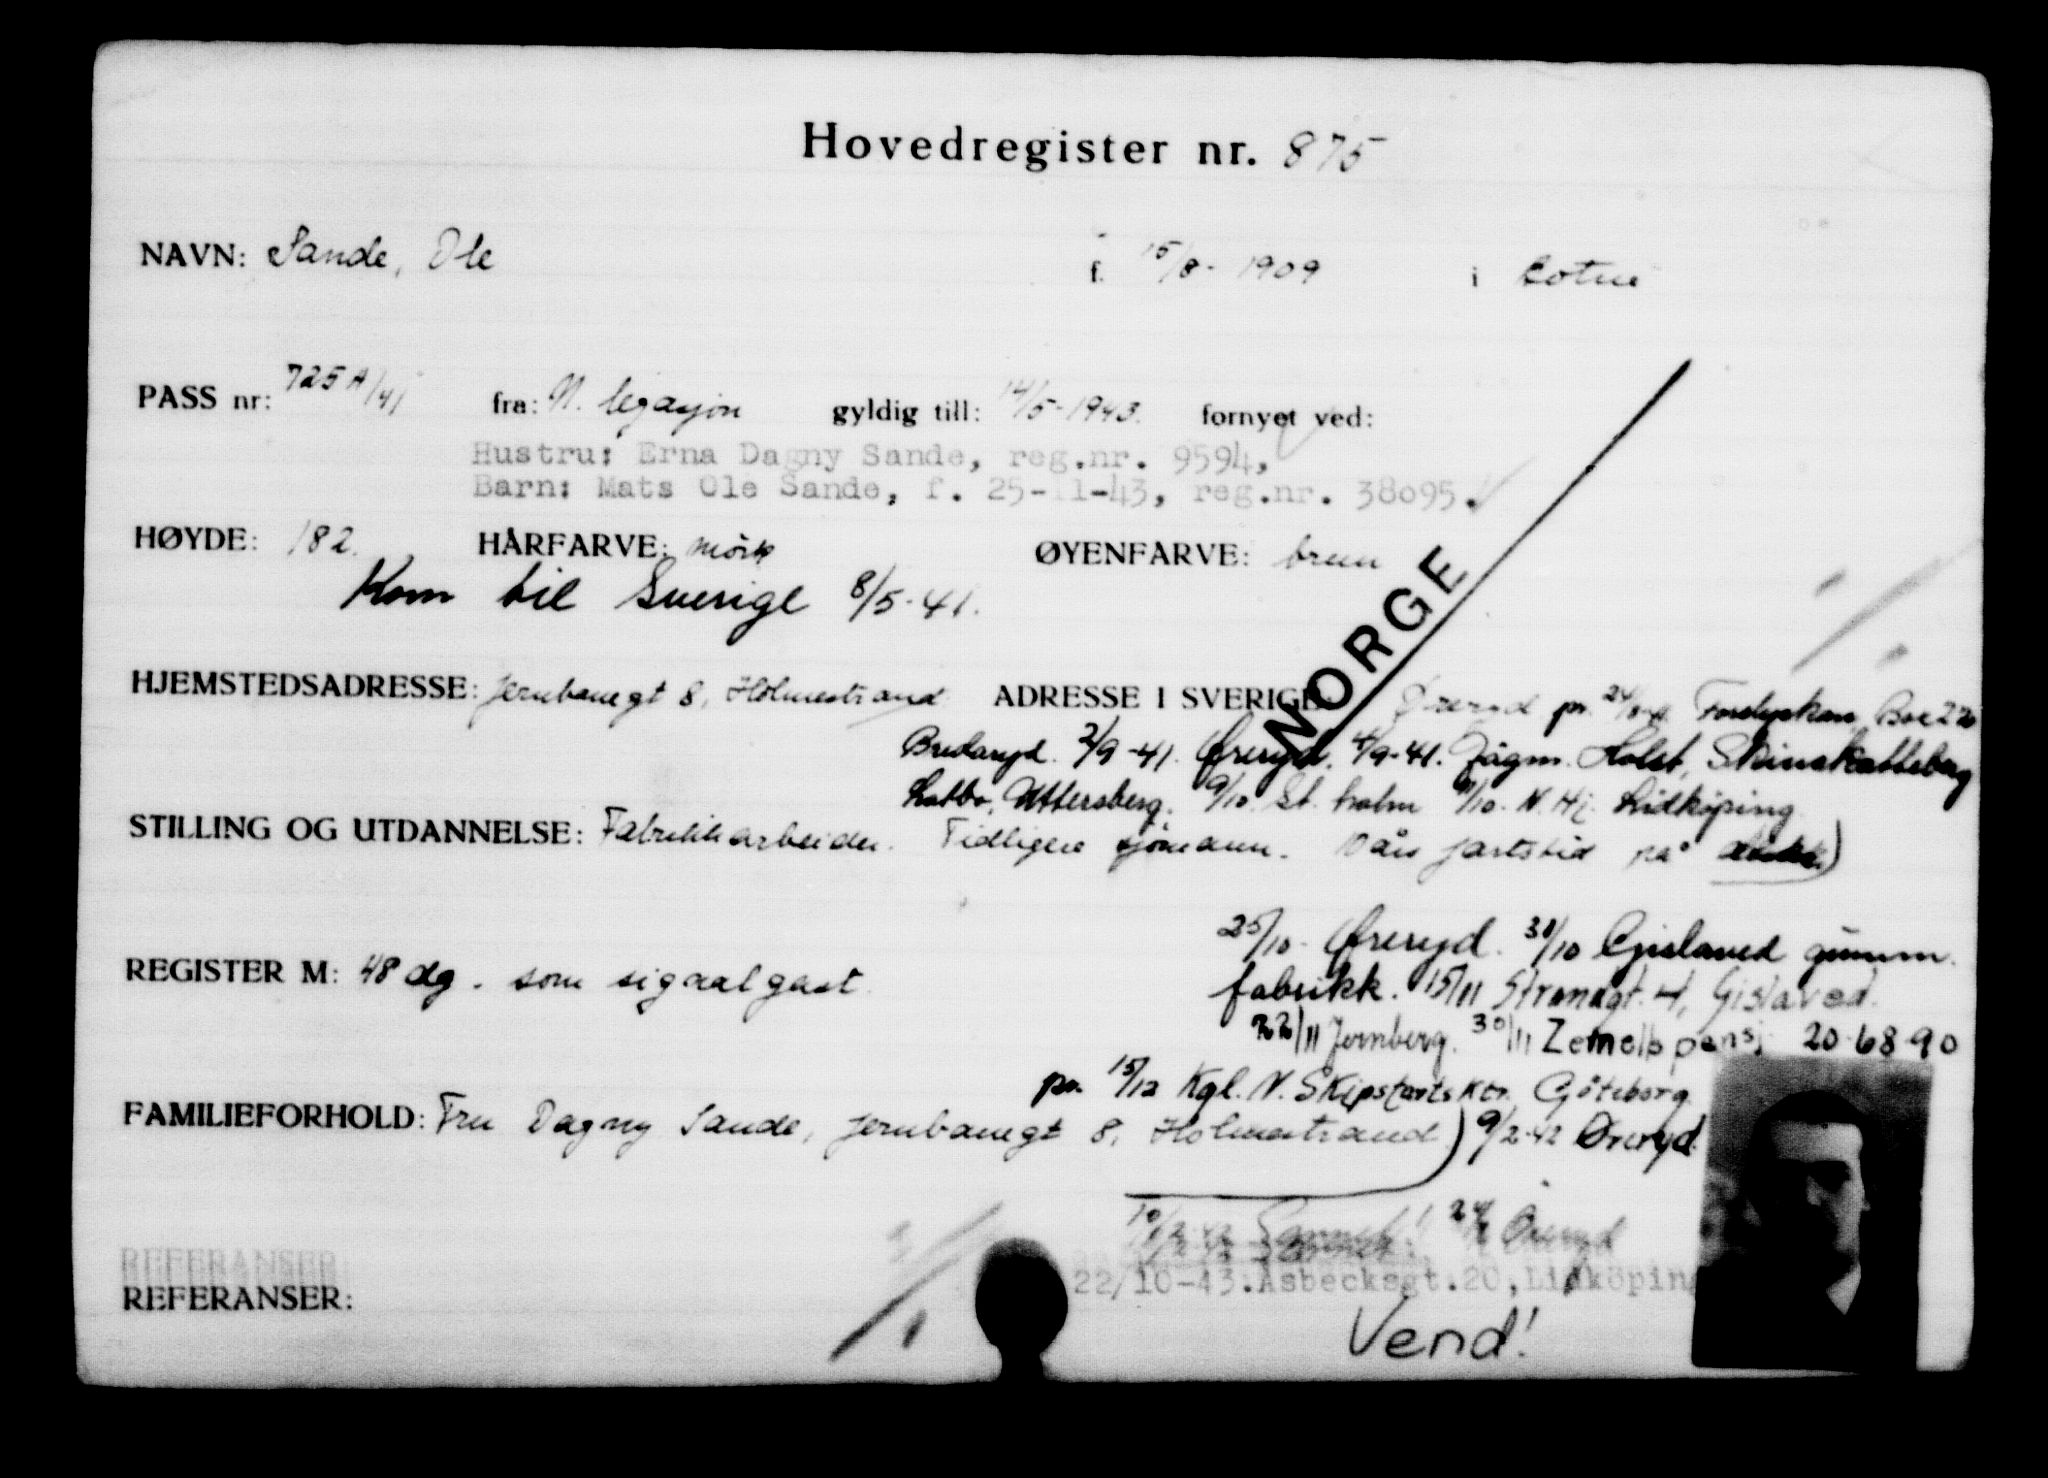 Hovedregister nr. 875
NAVN: Sande, Ole f. 15/8- 1909 i Botne
PASS nr: 725 A/41 fra: N. legasjon gyldig till: 14/5-1943. fornyet ved:
Hustru: Erna Dagny Sande, reg.nr. 9594,
Barn: Mats Ole Sande, f. 25-11-43, reg.nr. 38095.
HØYDE: 182. HÅRFARVE: mørk ØYENFARVE: brun
Kom til Sverige 8/5-41.
NORGE
HJEMSTEDSADRESSE: Jernbanegt 8, Holmestrand ADRESSE I SVERIGE: Øreryd pr. Box 220
Bredaryd. 2/9-41. Øreryd. 4/9-41. Jägm. Holst, Skinnskatteberg
Uttersberg. 9/10. St. holm N. Hj. Lidköping
STILLING OG UTDANNELSE: Fabrikkarbeider. Tidligere sjømann. 10 års fartstid på
25/10- Øreryd. 30/10 Gislaved gumm.
REGISTER M: 48 dg. som signalgast
fabrikk. 15/11 Strandgt. 4, Gislaved.
22/11 Jernberg. 30/11 pensj 20 68 90
pr. 15/12 Kgl. N. Skipsfartsktr. Göteborg
FAMILIEFORHOLD: Fru Dagny Sande, Jernbanegt 8, Holmestrand) 9/2-42 Øreryd.
10/2-42 Öreryd
REFERANSER
22/10-43. Åsbecksgt.20, Lidköping
REFERANSER:
Vend!